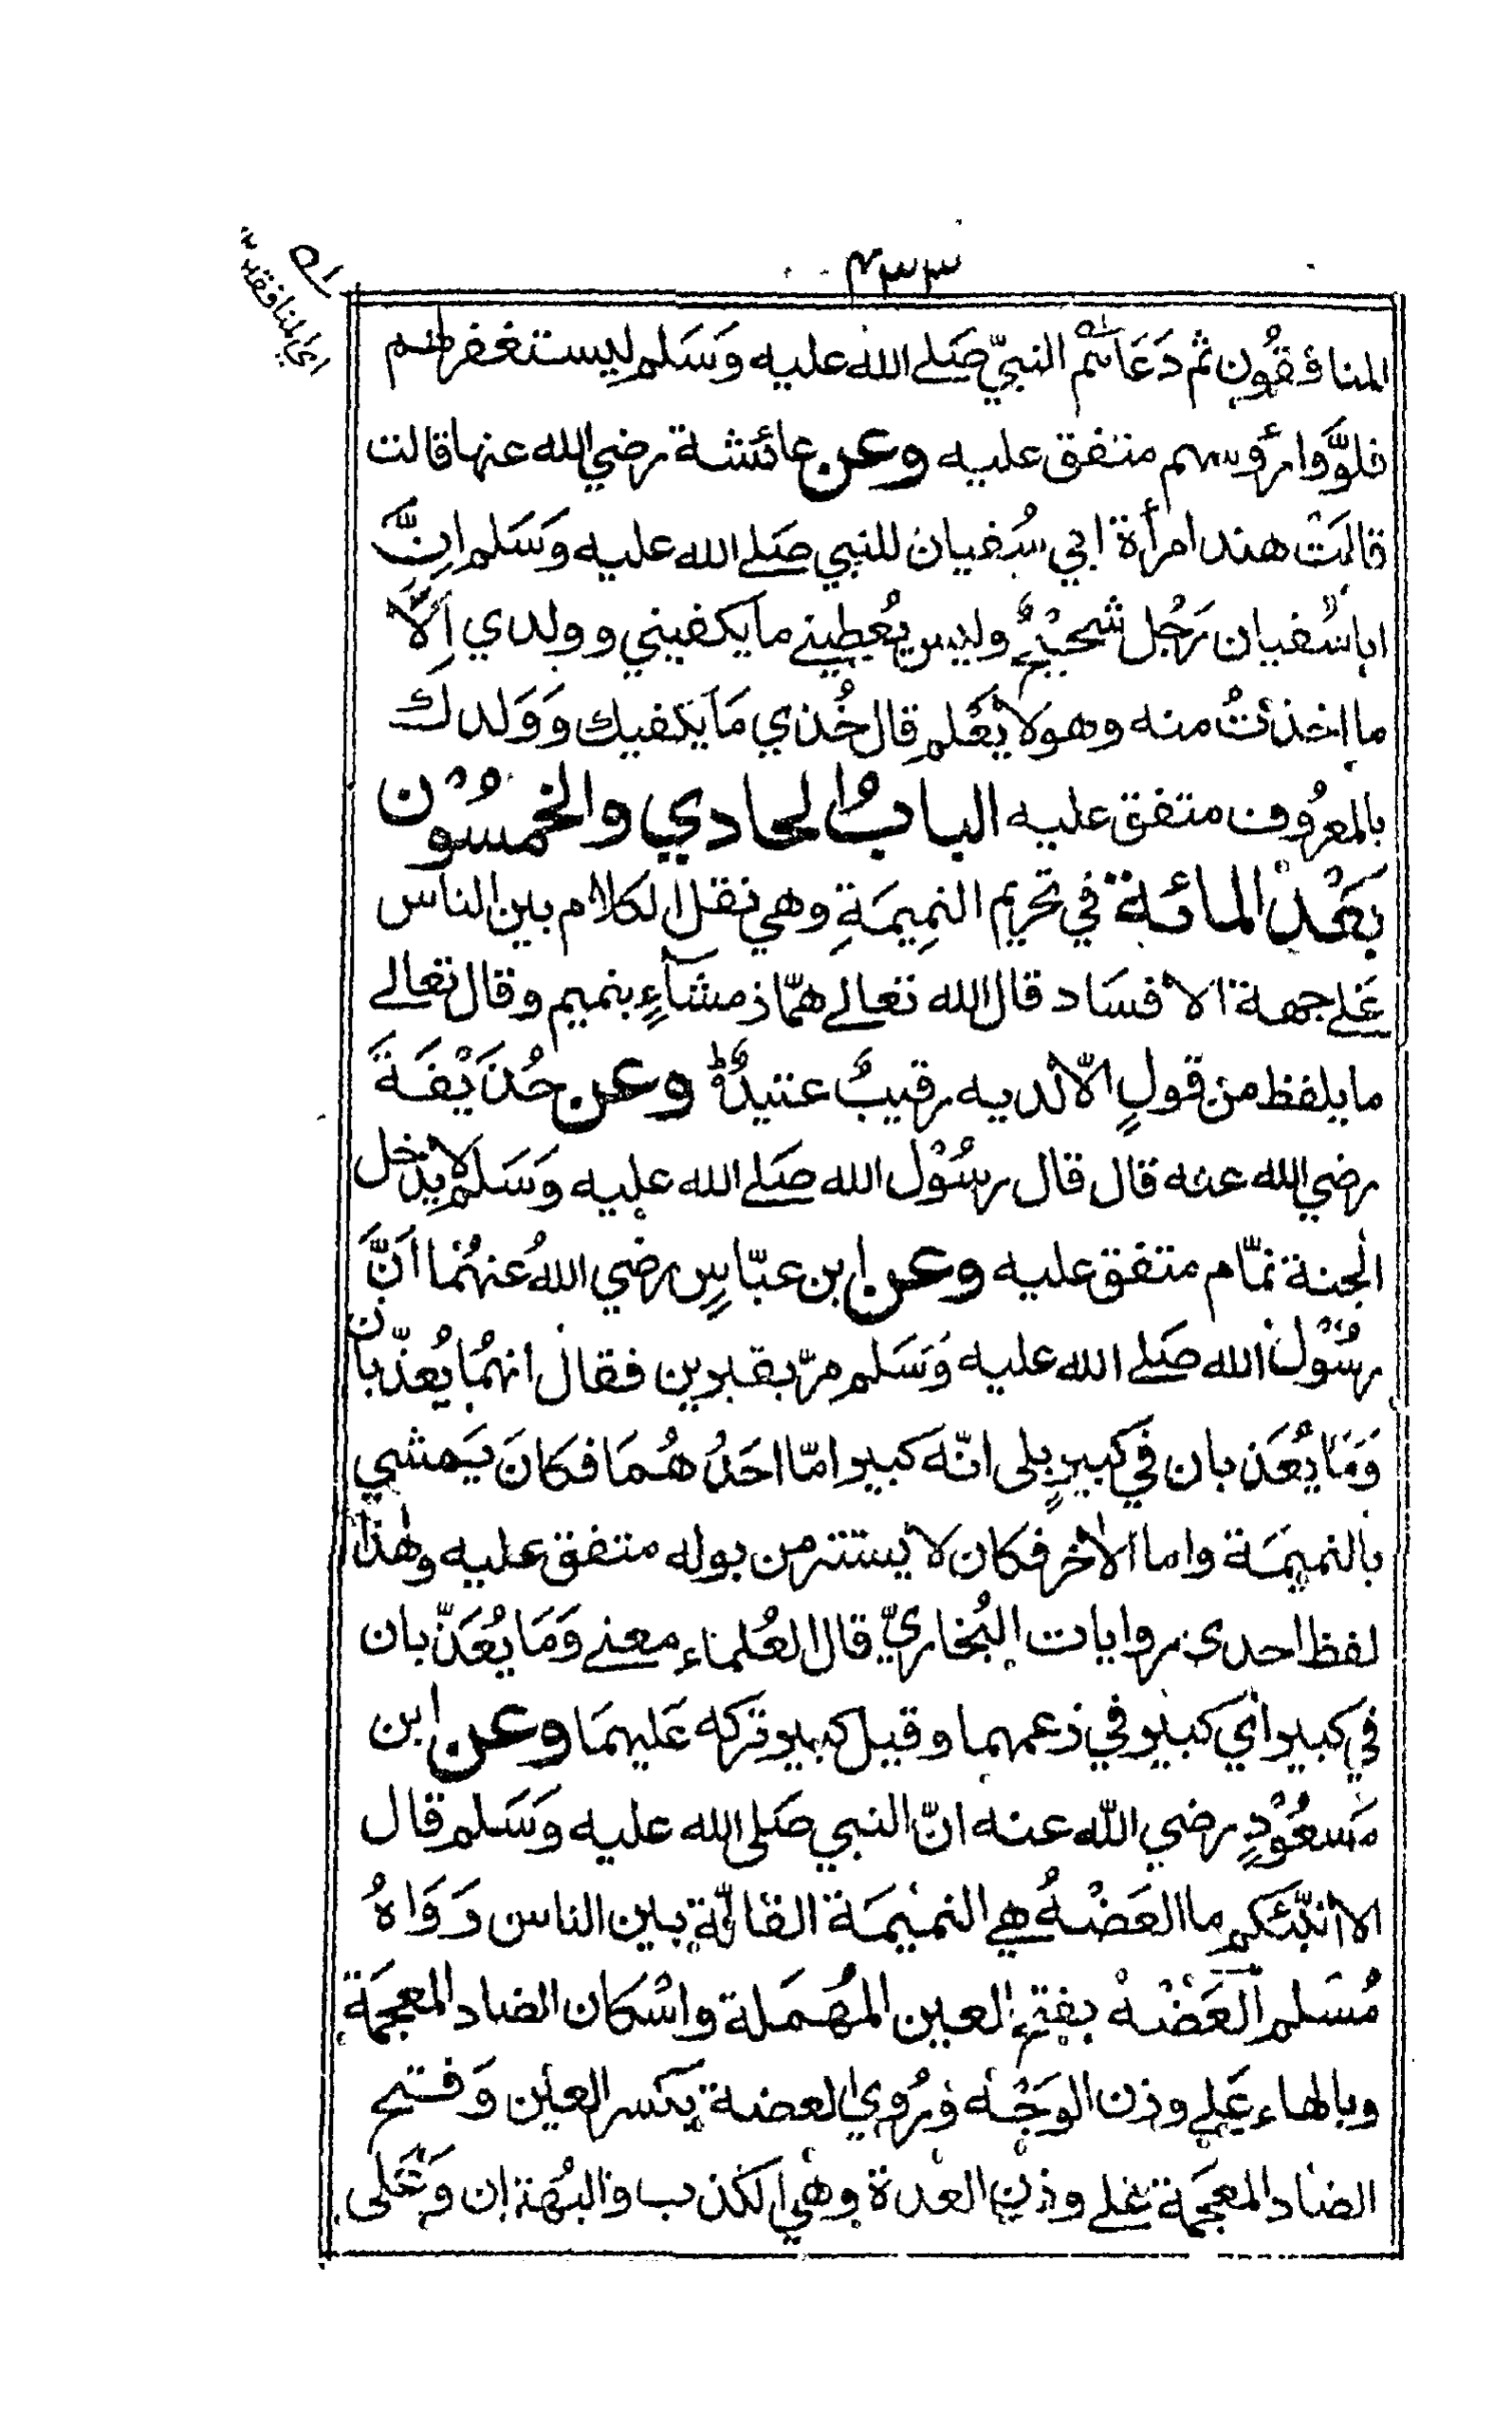 ٤٣٣
اي المنافقين
المنافقُون ثم دَعَاهُم النبيّ صَلے الله عليه وَسَلم لِيستغفر لهم
فلوَّوا رؤسهم متفق عليه وعن عائشة رضي الله عنها قالت
قالَتْ هند امرأة ابي سُفيان للنبي صَلے الله عليه وَسَلم اِنَّ
اباسُفيان رَجُل شحيْحٌ وليس يُعطينے ما يكفيني وولدي اِلَّا
ما اخذتُ منه وهو لا يَعْلم قال خُذي مَا يكفيك وَوَلدك
بالمعرُوف متفق عليه البابُ الحادي والخمسُوْن
بَعْدَ المائة في تحريم النمِيمَةِ وهي نقل الكلام بين الناس
عَلے جهة الافسَاد قال الله تعالے همّاز مشآءٍ بنميم وقال تعالے
ما يلفظ من قولٍ الّا لديه رقيبٌ عتيدٌ وعن حُذَيْفَةَ
رضي الله عنه قال قال رسُوْل الله صَلے الله عليه وَسَلم لا يدخل
الجنة نمّام متفق عليه وعن ابن عبّاسٍ رضي اللهُ عنهُمَا اَنَّ
رسُوْل الله صَلے الله عليه وَسَلم مرّ بقبرين فقال انهُمَا يُعذّبان
وَمَا يُعَذبان في كبيرٍ بلى انّه كبير امّا احَدُهُمَا فكَانَ يَمشي
بالنميمَة واما الاٰخر فكان لا يستتر من بوله متفق عليه وهٰذا
لفظ احدى روايات البُخاريّ قال العُلماء معنے وَمَا يُعَذّبان
في كبير اي كبير في زعمهما وقيل كبير تركه عَليهمَا وعن ابن
مَسعُوْدٍ رضي الله عنه انّ النبي صَلى الله عليه وَسَلم قال
الا انبّئكم ما العَضْهُ هي النميمَة القالّة بين الناس رَوَاهُ
مُسَلم اَلعَضْهُ بفتح العين المُهمَلة واسْكان الضاد المعجمَة
وبالهاء عَلے وزن الوَجْه وَرُوي العضة بكسر العين وَفتح
الضاد المعجمَة عَلے وزن العدة وهي الكذب والبُهتان وَعَلى